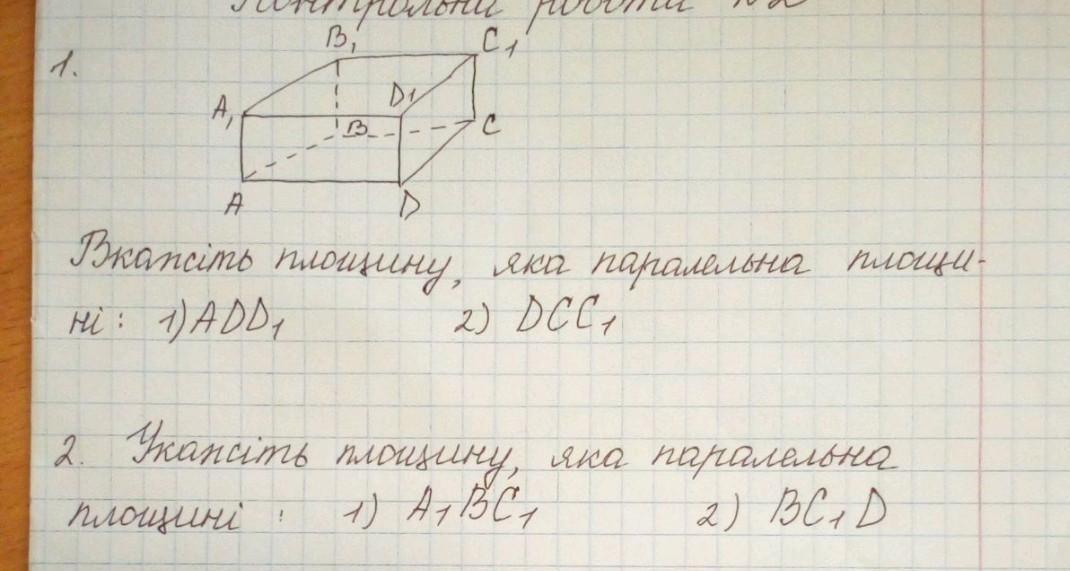 Контрольна робота №2
1.
B₁ C₁
A₁ D₁
B C
A D
Вкажіть площину, яка паралельна площи-
ні : 1) ADD₁ 2) DCC₁
2. Укажіть площину, яка паралельна
площині : 1) A₁BC₁ 2) BC₁D